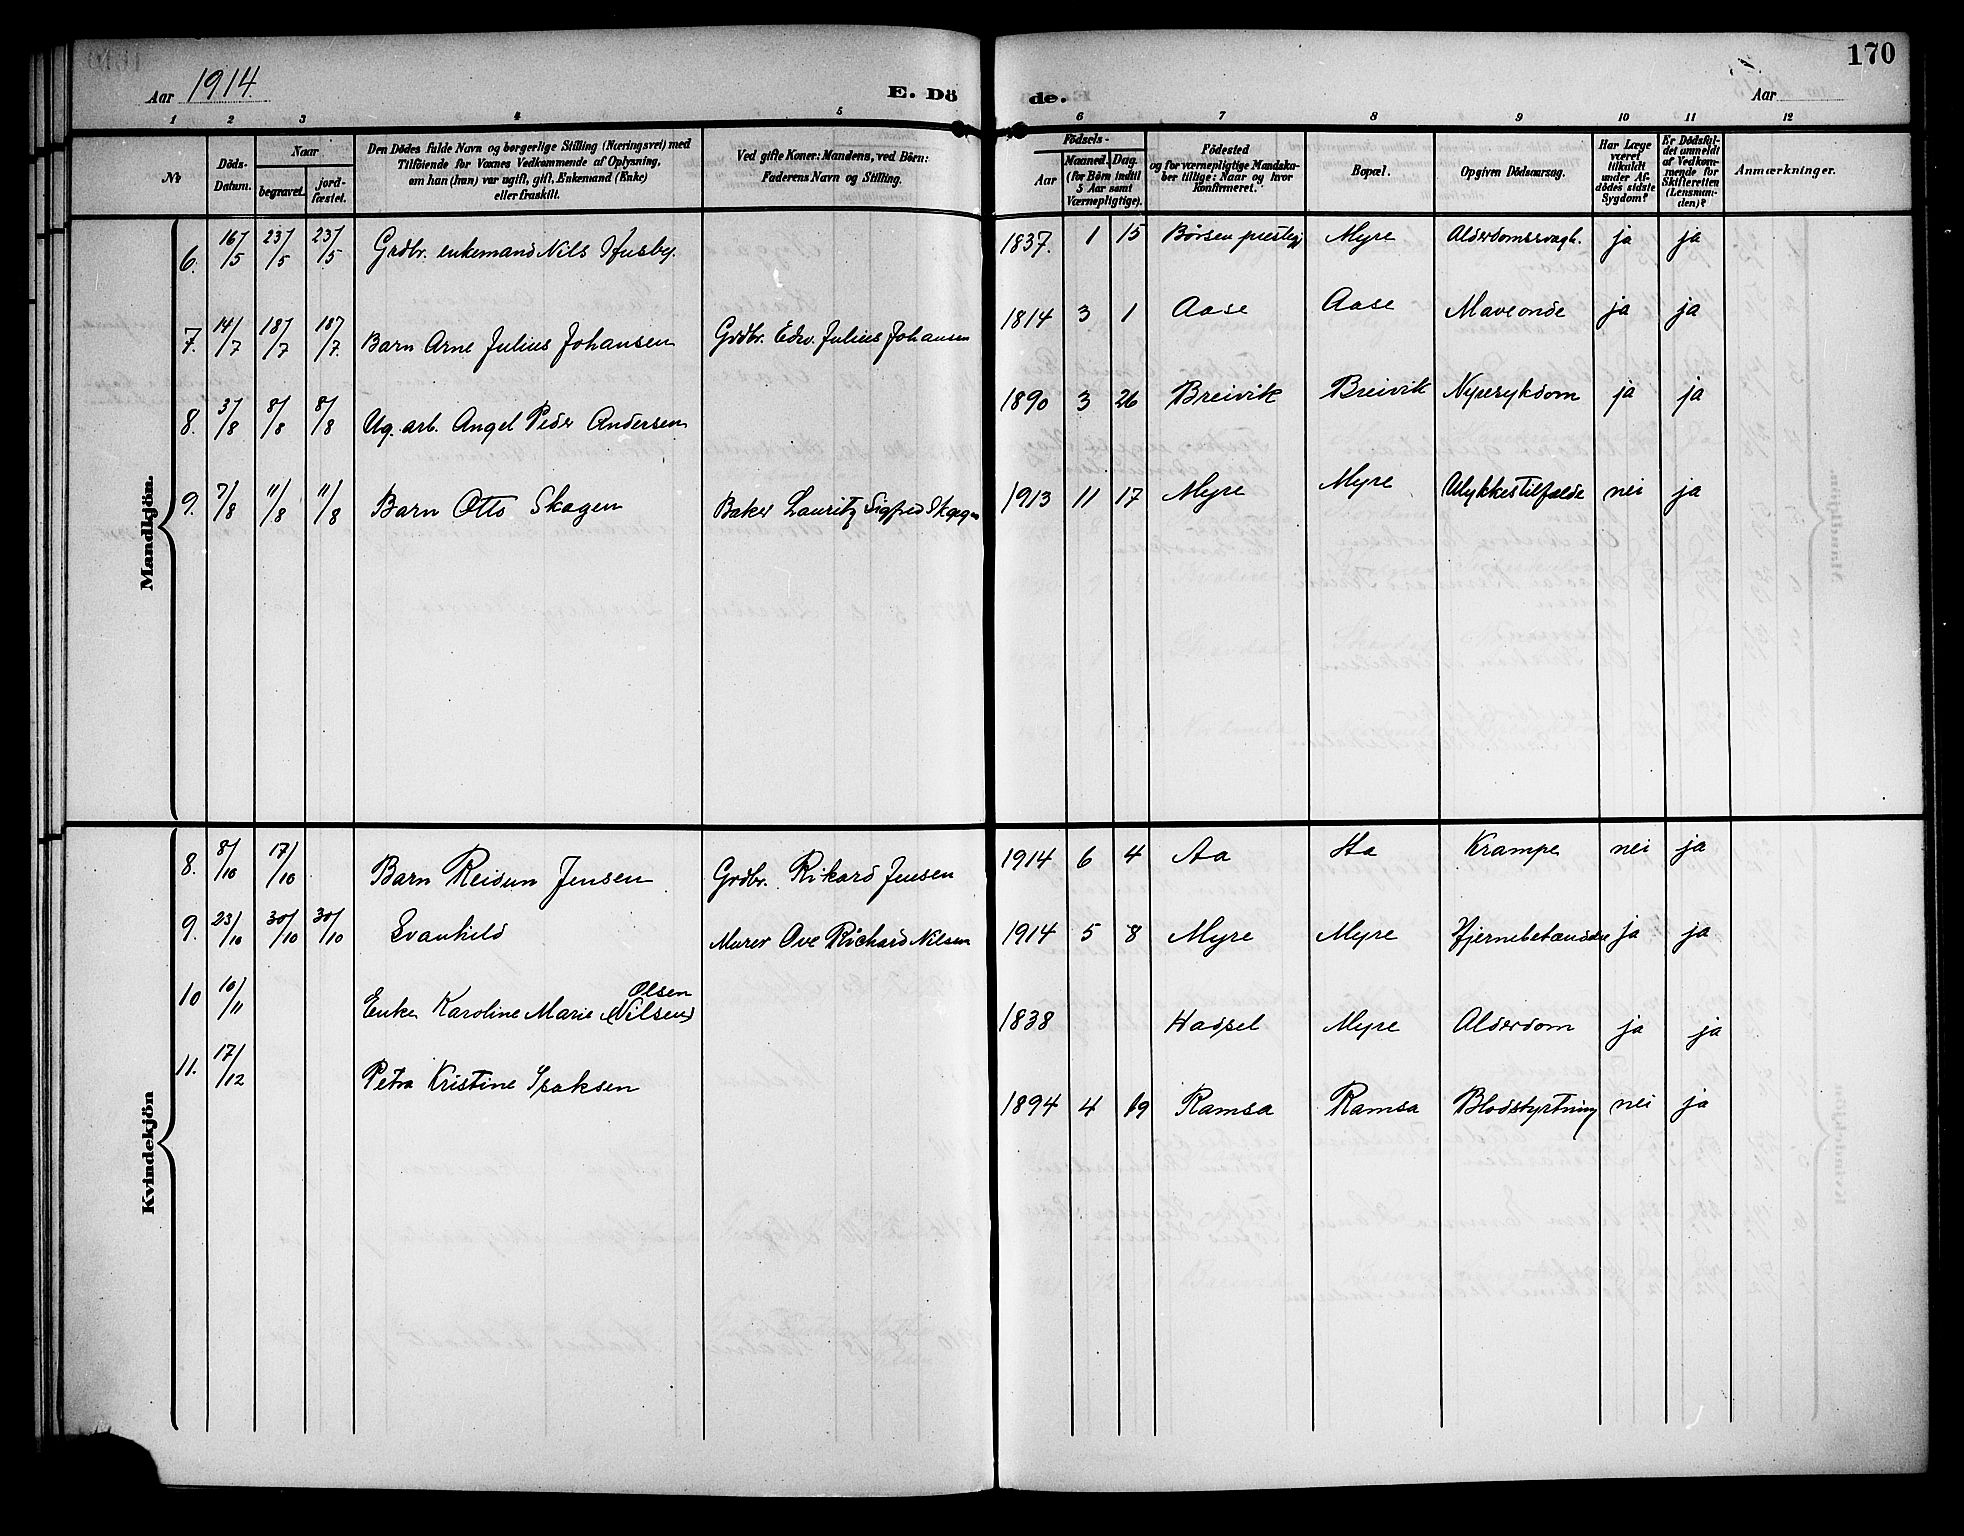 170
Aar 1914.
E. Dö
de.
Aar
1 2 3 4 5 6 7 8 9 10 11 12
Nr
Döds-
Datum.
Naar
begravet.
jord-
fæstet.
Den Dödes fulde Navn og borgerlige Stilling (Næringsvei) med
Tilföiende for Voxnes Vedkommende af Oplysning,
om han (hun) var ugift, gift, Enkemand (Enke)
eller fraskilt.
Ved gifte Koner: Mandens, ved Börn:
Faderens Navn og Stilling.
Födsels-
Aar
Maaned. Dag.
(for Börn indtil
5 Aar samt
Værnepligtige).
Födested
og for værnepligtige Mandska-
ber tillige: Naar og hvor
konfirmeret.
Bopæl.
Opgiven Dödsaarsag.
Har Læge
været
tilkaldt
under Af-
dödes sidste
Sygdom?
Er Dödsfal-
det anmeldt
af Vedkom-
mende for
Skifteretten
(Lensman-
den)?
Anmærkninger.
Mandkjön.
6. 16/5 23/5 23/5 Grdbr. enkemand Nils Husby. 1837. 1 15 Børsen prestegj Myre Alderdomssvagh. ja ja
7. 14/7 18/7 18/7. Barn Arne Julius Johansen Grdbr. Edv. Julius Johansen 1814 3 1 Aase Aase Maveonde ja ja
8. 3/8 8/8 8/8 Ug. arb. Angel Peder Andersen 1890 3 26 Breivik Breivik Nyresykdom ja ja
9. 7/8 11/8 11/8 Barn Otto Skagen Baker Lauritz Sigfred Skagen 1913 11 17 Myre Myre Ulykkestilfælde nei ja
Kvindekjön
8. 8/10 17/10 Barn Reidun Jensen Grdbr. Rikard Jensen 1914 6 4 Aa Aa Krampe nei ja
9. 23/10 30/10 30/10 Svanhild Murer Ove Richard Nilsen 1914 5 8 Myre Myre Hjernebetændelse ja ja
Olsen
10 10/11 Enke Karoline Marie (Nilsen) 1838 Hadsel Myre Alderdom ja ja
11. 17/12 Petra Kristine Isaksen 1894 4 19 Ramsa Ramsa Blodstyrtning nei ja